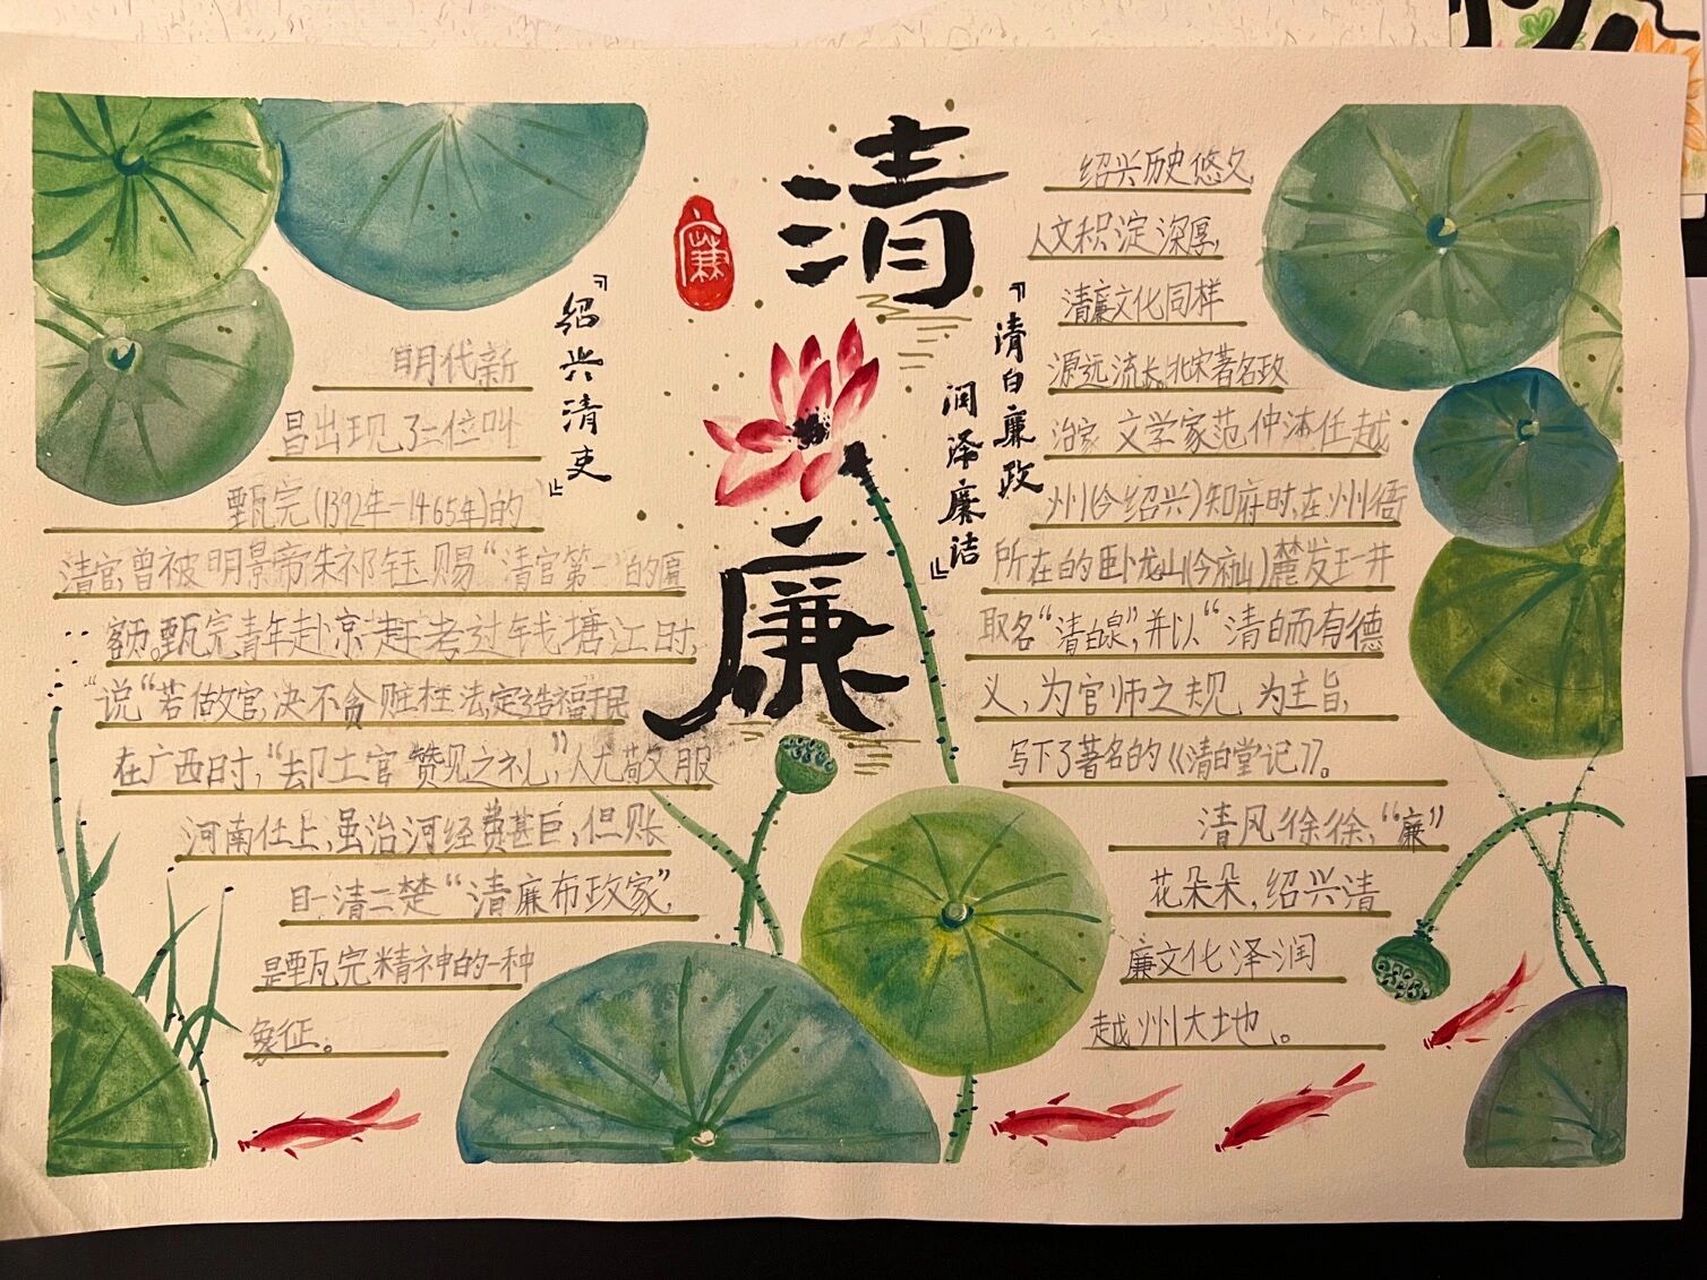 清
廉
廉
『绍兴清吏』
明代新
昌出现了一位叫
甄完(1392年-1465年)的
清官,曾被明景帝朱祁钰赐“清官第一”的匾
额。甄完青年赴京赶考过钱塘江时,
说“若做官,决不贪赃枉法,定造福于民
在广西时,“却土官贽见之礼”,人尤敬服
河南任上,虽治河经费甚巨,但账
目一清二楚“清廉布政家”,
是甄完精神的一种
象征。
『清白廉政
润泽廉洁』
绍兴历史悠久,
人文积淀深厚,
清廉文化同样
源远流长。北宋著名政
治家 文学家范仲淹任越
州(今绍兴)知府时,在州衙
所在的卧龙山(今府山)麓发现一井
取名“清白泉”,并以“清白而有德
义,为官师之规 为主旨,
写下了著名的《清白堂记》。
清风徐徐,“廉”
花朵朵,绍兴清
廉文化泽润
越州大地。